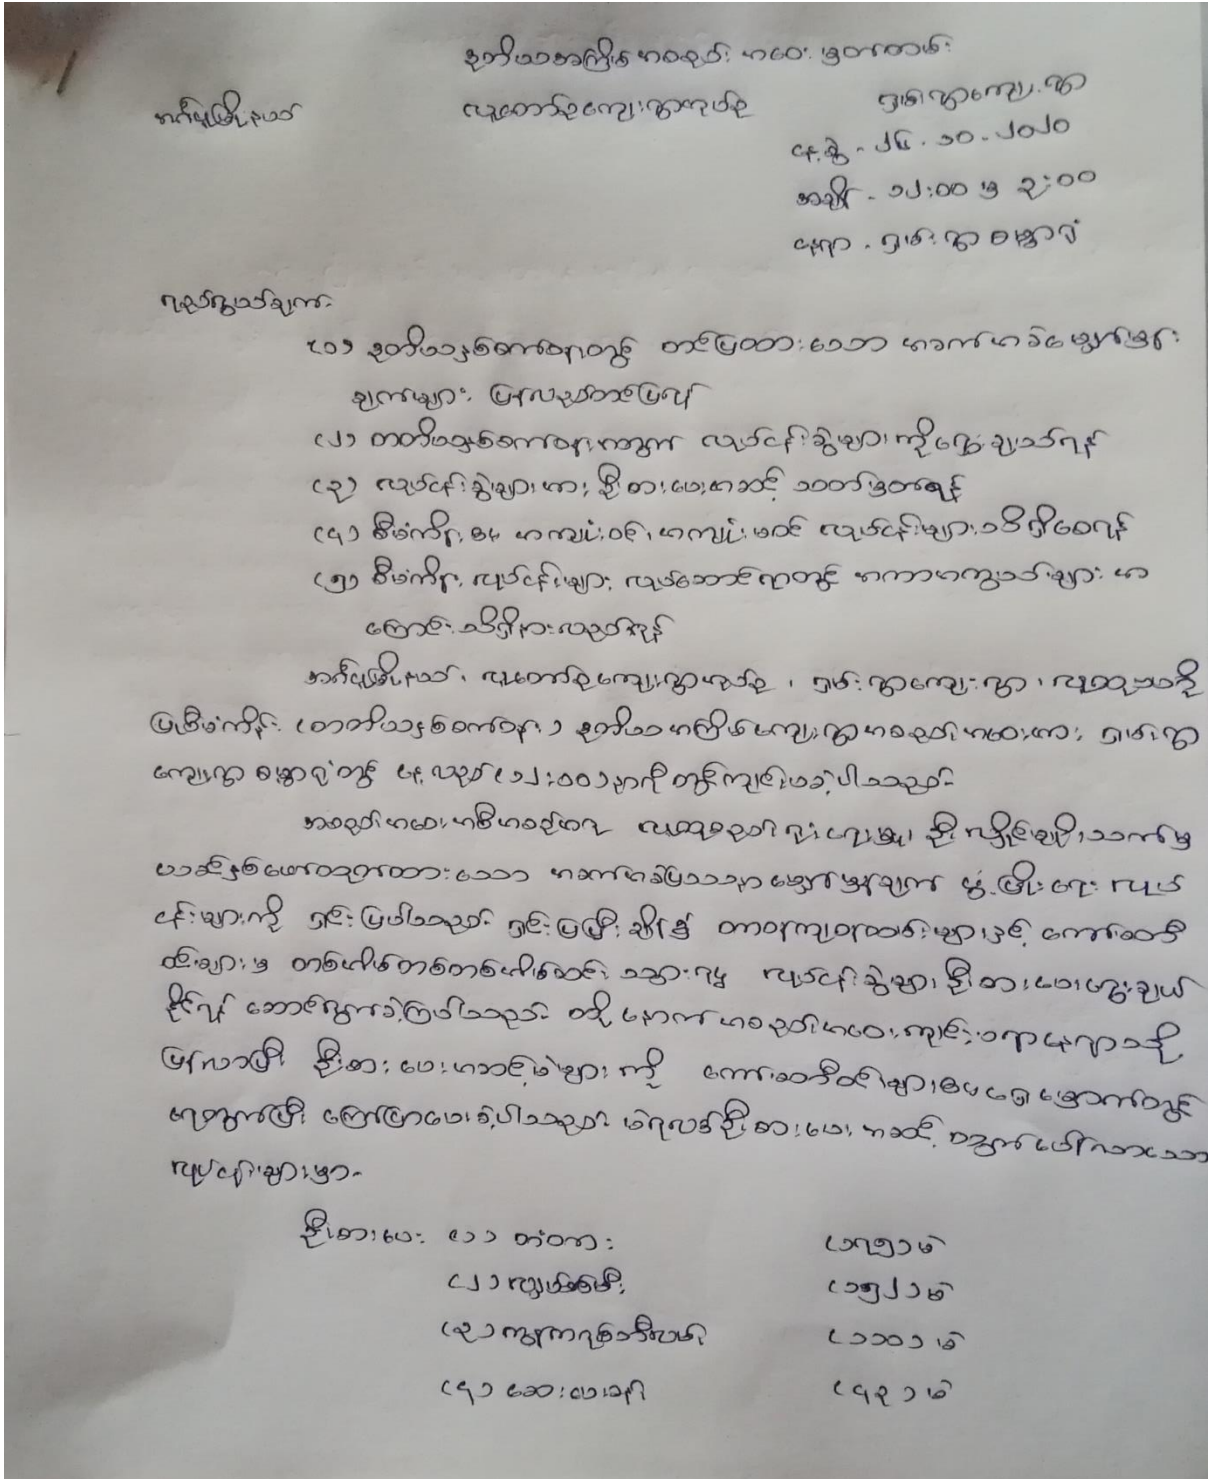 ဒုတိယအကြိမ် အစည်းအဝေး မှတ်တမ်း
အင်းပုမြို့နယ် လူတော်ဦကျေးရွာအုပ်စု ရှမ်းရွာကျေးရွာ
နေ့စွဲ - ၂၄.၁၀.၂၀၂၀
အချိန် - ၁၂:၀၀ မှ ၃:၀၀
နေရာ - ရှမ်းရွာ ဓမ္မာရုံ
ရည်ရွယ်ချက်
(၁) ဒုတိယနှစ်စက်ဝန်းတွင် တင်ပြထားသော အခက်အခဲမျှော်မှန်း
ချက်များ ပြန်လည်တင်ပြရန်
(၂) တတိယနှစ်စက်ဝန်းအတွက် လုပ်ငန်းခွဲများကိုရွေးချယ်ရန်
(၃) လုပ်ငန်းခွဲများအား ဦးစားပေးအဆင့် သတ်မှတ်ရန်
(၄) စီမံကိန်းမှ အကျုံးဝင်၊ အကျုံးမဝင် လုပ်ငန်းများသိရှိစေရန်
(၅) စီမံကိန်းလုပ်ငန်းများ လုပ်ဆောင်ရာတွင် အကာအကွယ်များ အ
ကြောင်း သိရှိနားလည်ရန်
အင်းပုမြို့နယ်၊ လူတော်ဦကျေးရွာအုပ်စု၊ ရှမ်းရွာကျေးရွာ၊ လူထုဗဟို
ပြုစီမံကိန်း (တတိယနှစ်စက်ဝန်း) ဒုတိယအကြိမ်ကျေးရွာအစည်းအဝေးအား ရှမ်းရွာ
ကျေးရွာ ဓမ္မာရုံတွင် နေ့လည် (၁၂:၀၀)နာရီတွင်ကျင်းပခဲ့ပါသည်။
အစည်းအဝေးအစီအစဉ်အရ လူထုစည်းရုံးရေးမှူး ဦး သက်မှ
ယခင်နှစ်ဖော်ထုတ်ထားသော အခက်အခဲပြဿနာမျှော်မှန်းချက် ဖွံ့ဖြိုးရေး လုပ်
ငန်းများကို ရှင်းပြပါသည်။ ရှင်းပြပြီးချိန်၌ တာဝန်ကျဝန်ထမ်းများနှင့် ကော်မတီ
ဝင်များမှ တစ်အိမ်တစ်အိမ်ဆင်း သွား၍ လုပ်ငန်းခွဲများ ဦးစားပေးရွေးချယ်
နိုင်ရန် ဆောင်ရွက်ခဲ့ကြပါသည်။ ထို့နောက် အစည်းအဝေးကျင်းပရာနေရာသို့
ပြန်လာပြီး ဦးစားပေးအဆင့်မဲများကို ကော်မတီဝင်များ၏ရှေ့မှောက်တွင်
ရေတွက်ပြီး ကြေငြာပေးခဲ့ပါသည်။ မဲရလဒ်ဦးစားပေးအဆင့် ထွက်ပေါ်လာသော
လုပ်ငန်းများမှာ-
ဦးစားပေး (၁) တံတား (၁၇၅)မဲ
(၂) လျှပ်စစ်မီး (၁၅၂)မဲ
(၃) ကွန်ကရစ်လမ်း (၁၁၀)မဲ
(၄) ဆေးပေးခန်း (၄၃)မဲ